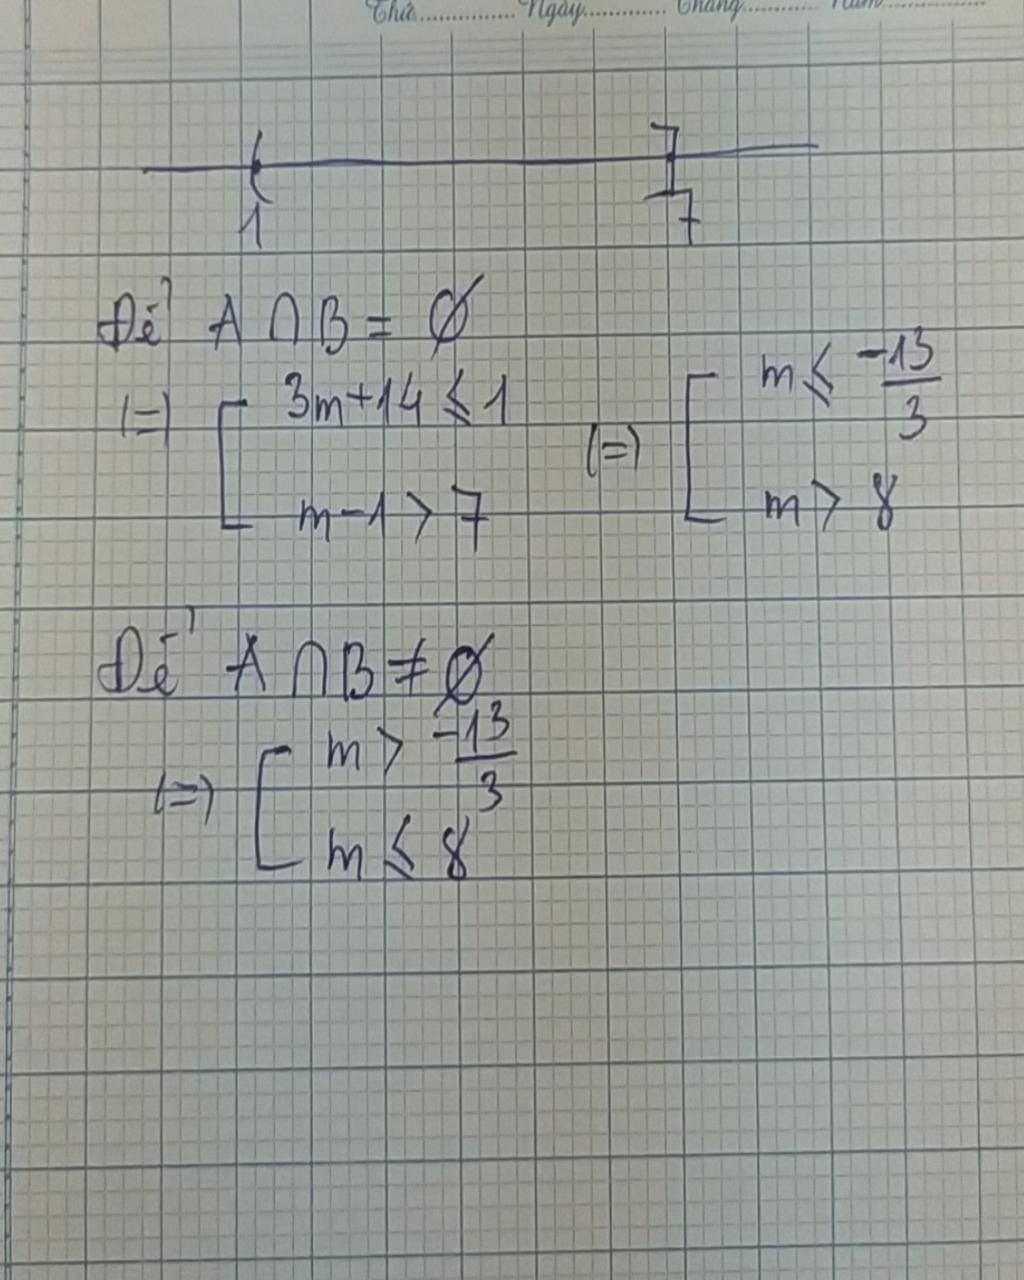 Thứ.............. Ngày............ Tháng.......... Năm...............
1 7
Để A ∩ B = ∅
(=) [ 3m+14 ≤ 1 (=) [ m ≤ -13/3
m-1 > 7 m > 8
Để A ∩ B ≠ ∅
(=) [ m > -13/3
m ≤ 8